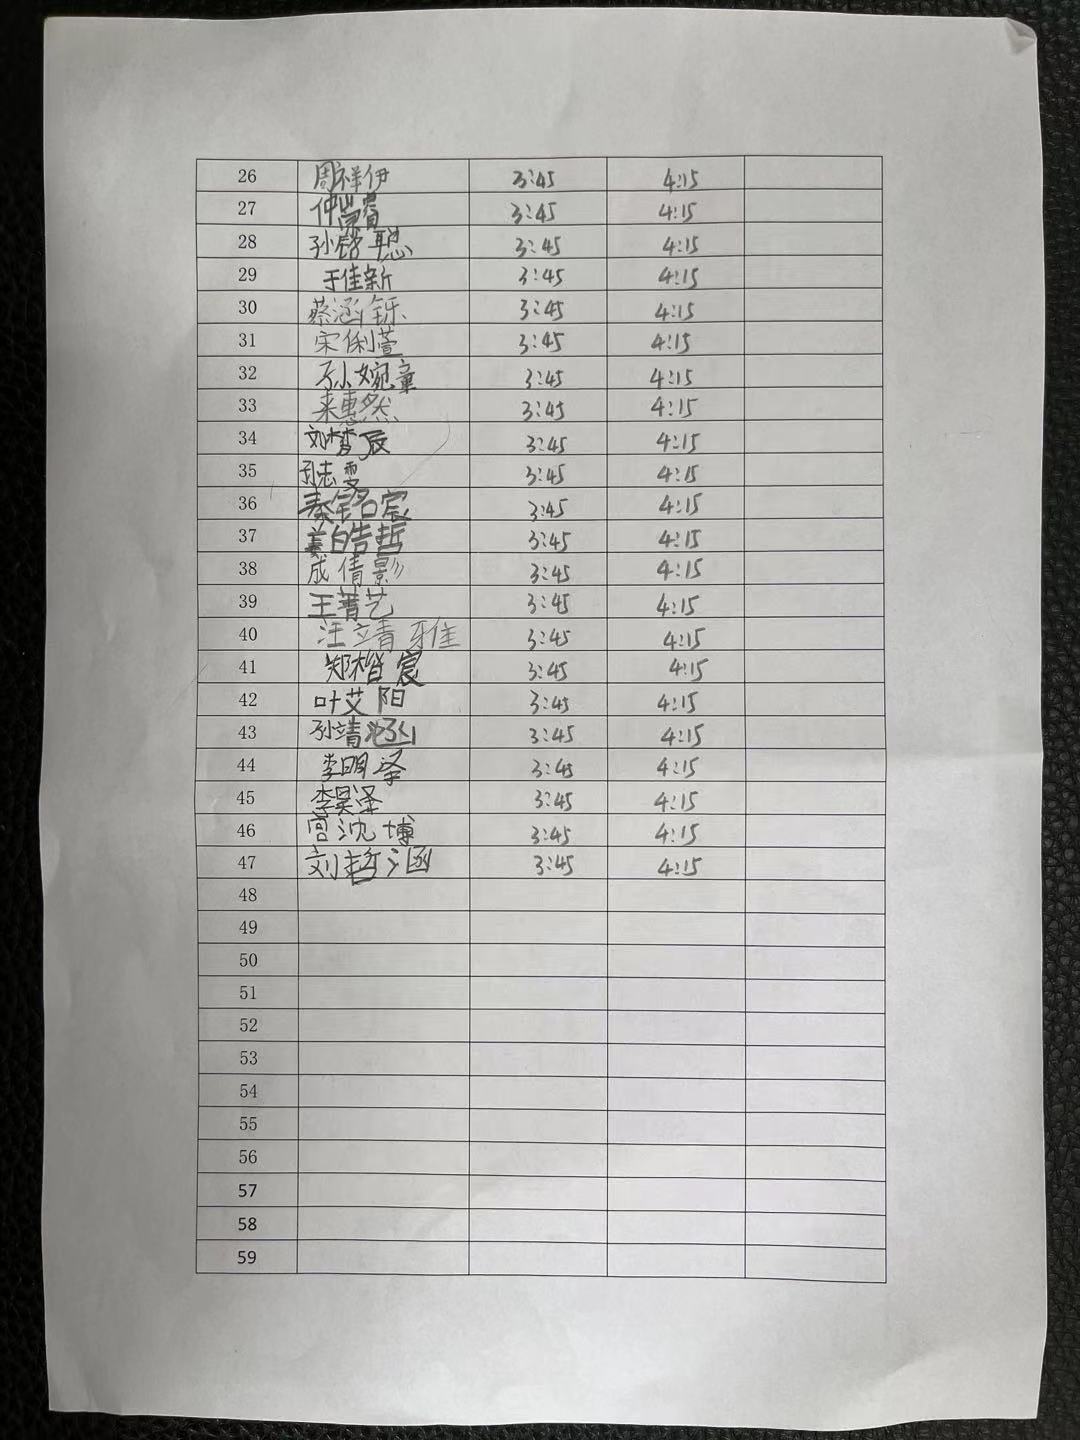 26 周祥伊 3:45 4:15
27 仲崇睿 3:45 4:15
28 孙铭聪 3:45 4:15
29 于佳新 3:45 4:15
30 蔡涵铄 3:45 4:15
31 宋俐萱 3:45 4:15
32 孙婉童 3:45 4:15
33 来惠然 3:45 4:15
34 刘梦辰 3:45 4:15
35 孙志雯 3:45 4:15
36 秦铭宸 3:45 4:15
37 姜皓哲 3:45 4:15
38 成倩影 3:45 4:15
39 王菁艺 3:45 4:15
40 汪靖雅 3:45 4:15
41 郑楷宸 3:45 4:15
42 叶艾阳 3:45 4:15
43 孙靖涵 3:45 4:15
44 李明泽 3:45 4:15
45 李昊泽 3:45 4:15
46 宫沈博 3:45 4:15
47 刘哲涵 3:45 4:15
48
49
50
51
52
53
54
55
56
57
58
59